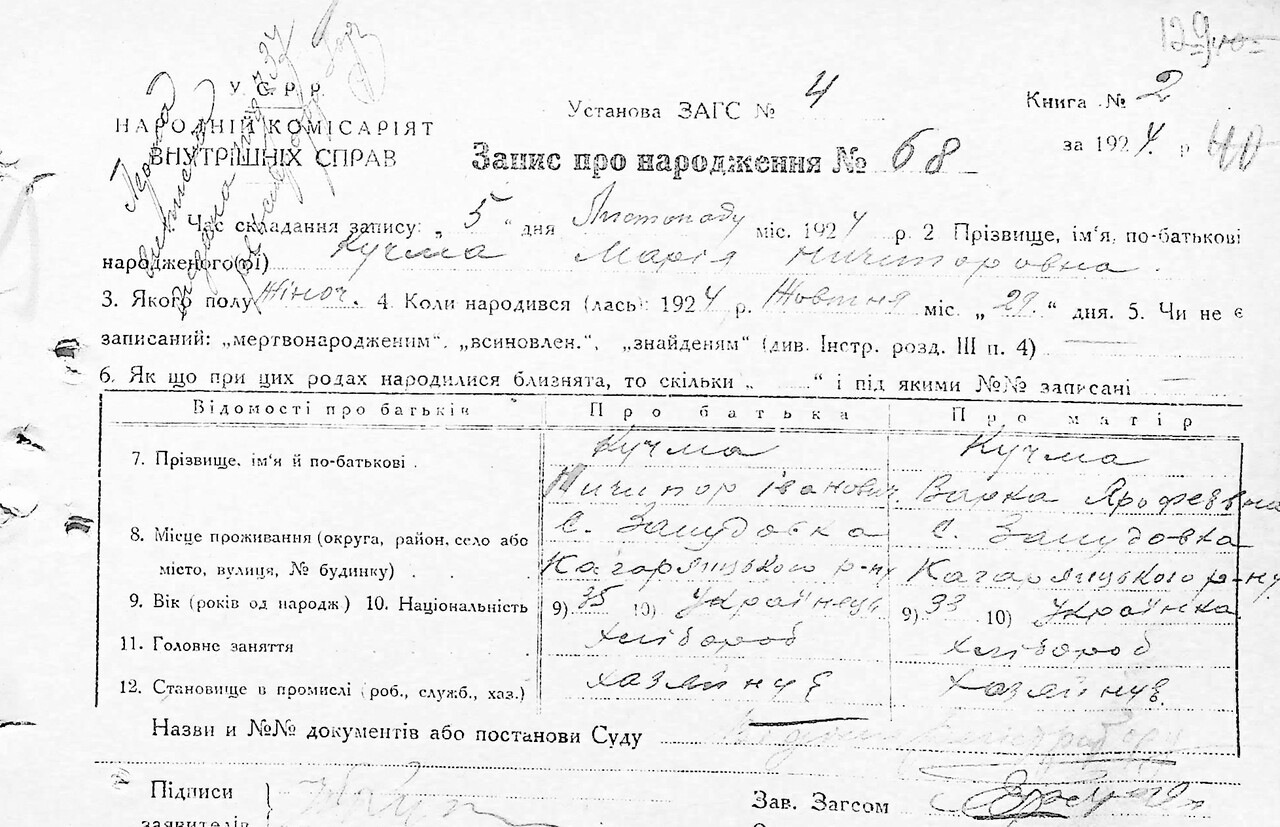 129
У. С. Р. Р.
НАРОДНІЙ КОМІСАРІЯТ
ВНУТРІШНІХ СПРАВ
Установа ЗАГС № 4
Книга № 2
за 1924 р 40
Запис про народження № 68
Час складання запису: „ 5 “ дня Листопаду міс. 1924 р. 2 Прізвище, ім'я, по-батькові
народженого(ої) Кучма Марія Ничипоровна.
3. Якого полу Жіноч. 4. Коли народився (лась): 1924 р. Жовтня міс. „ 29. “ дня. 5. Чи не є
записаний: „мертвонародженим“, „всиновлен.“, „знайденям“ (див. Інстр. розд. III п. 4)
6. Як що при цих родах народилися близнята, то скільки „ “ і під якими №№ записані
Відомості про батьків Про батька Про матір
7. Прізвище, ім'я й по-батькові . Кучма Кучма
Ничипор Іванович. Варка Ярофеевна
8. Місце проживання (округа, район, село або с. Замудовка с. Замудовка
місто, вулиця, № будинку) . . Кагарлицького р-ну Кагарлицького р-ну
9. Вік (років од народж) 10. Національність 9) 35 10) Українець 9) 33 10) Українка
11. Головне заняття хлібороб хлібороб
12. Становище в промислі (роб., служб., хаз.) хазяйнує хазяйнує.
Назви и №№ документів або постанови Суду
Підписи
заявителів
Зав. Загсом